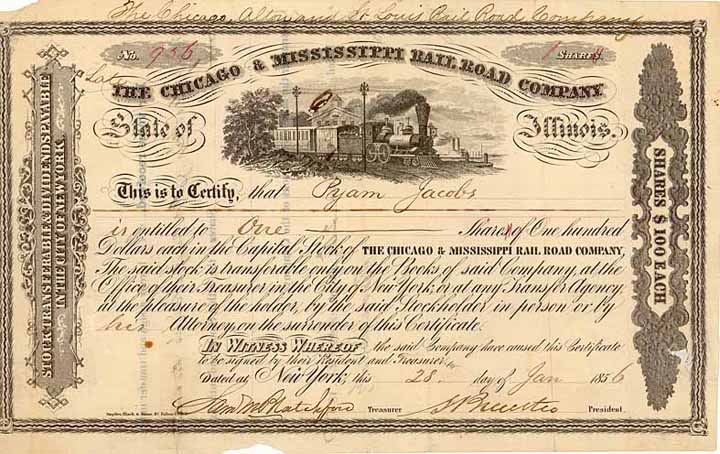 The Chicago, Alton and St Louis Rail Road Company
No. 956
1 SHARE
Late
THE CHICAGO & MISSISSIPPI RAIL ROAD COMPANY
State of Illinois.
This is to Certify, that Pyam Jacobs
is entitled to One Shares of One hundred
Dollars each in the Capital Stock of THE CHICAGO & MISSISSIPPI RAIL ROAD COMPANY.
The said stock is transferable only on the Books of said Company, at the
Office of their Treasurer in the City of New York, or at any Transfer Agency
at the pleasure of the holder, by the said Stockholder in person or by
his Attorney, on the surrender of this Certificate.
IN WITNESS WHEREOF the said Company have caused this Certificate
to be signed by their President and Treasurer.
Dated at New York, this 28 day of Jan 1856
Treasurer
President.
STOCK TRANSFERABLE & DIVIDENDS PAYABLE
IN THE CITY OF NEW YORK.
SHARES $100 EACH